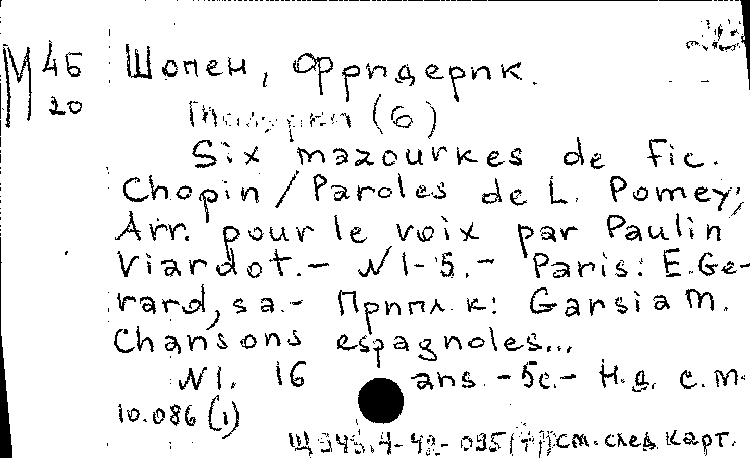 М 45 Шопен, Фридерик.
20 Мазурки (6)
Six mazourkes de Fic.
Chopin / Paroles de L. Pomey;
Arr. pour le voix par Paulin
Viardot. - N 1-5. - Paris: E. Ge-
rard, s a. - Припл. к: Garsia M.
Chansons espagnoles...
N 1. 16 ans. - 5 c. - Н.д. с.м.
10.086 (1)
Щ 945.4-42- см. след. карт.